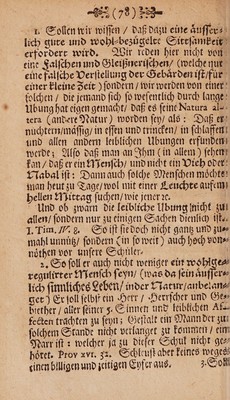 (78)
1. Sollen wir wissen / daß dazu eine äusser-
lich gute und wohl-bezügelte Sittsamkeit
erfordert wird. Wir reden hier nicht von
eine Falschen und Gleißnerischen/ (welche nur
eine falsche Verstellung der Gebärden ist/ für
einer kleine Zeit) sondern/ wir werden von einer
solchen / die jemand sich so wesentlich durch lange
Ubung hat eigen gemacht/ daß es seine Natura al-
tera (andere Natur) worden sey/ als: Daß er
nuchtern/mässig/ in essen und trincken/ in schlaffen
und allen andern leiblichen Ubungen erfunden
werde; Also daß man an Jhm (in allen) sehen
kan/ daß er ein Mensch/ und nicht ein Vieh oder
Nabal ist: Dann auch solche Menschen möchte
man heut zu Tage/ wol mit einer Leuchte auf'm
hellen Mittag suchen/ wie jener
Und ob zwarn die leibliche Ubung nicht zu
allen/ sondern nur zu einigen Sachen dienlich ist.
1. Tim. IV. 8. So ist sie doch nicht gantz und zu-
mahl unnütz/ sondern (in so weit) auch hoch von-
nöthen vor unsere Schüler.
2. So soll er auch nicht weniger ein wohlge-
regulirter Mensch seyn/ (was da sein äusser-
lich sinnliches Leben/ in der Natur/ anbelan-
get) Er soll selbst ein Herr / Herrscher und Ge-
biether / aller seiner 5. Sinnen und leiblichen Af-
fecten trachten zu seyn; Gestalt ein Mann der zu
solchem Stande nicht verlanget zu kommen / ein
Narr ist: welcher ja zu dieser Schul nicht ge-
höret. Prov xvi. 32. Schlusst aber keines weges
einen billigen und zeitigen Eyfer aus.
3. So